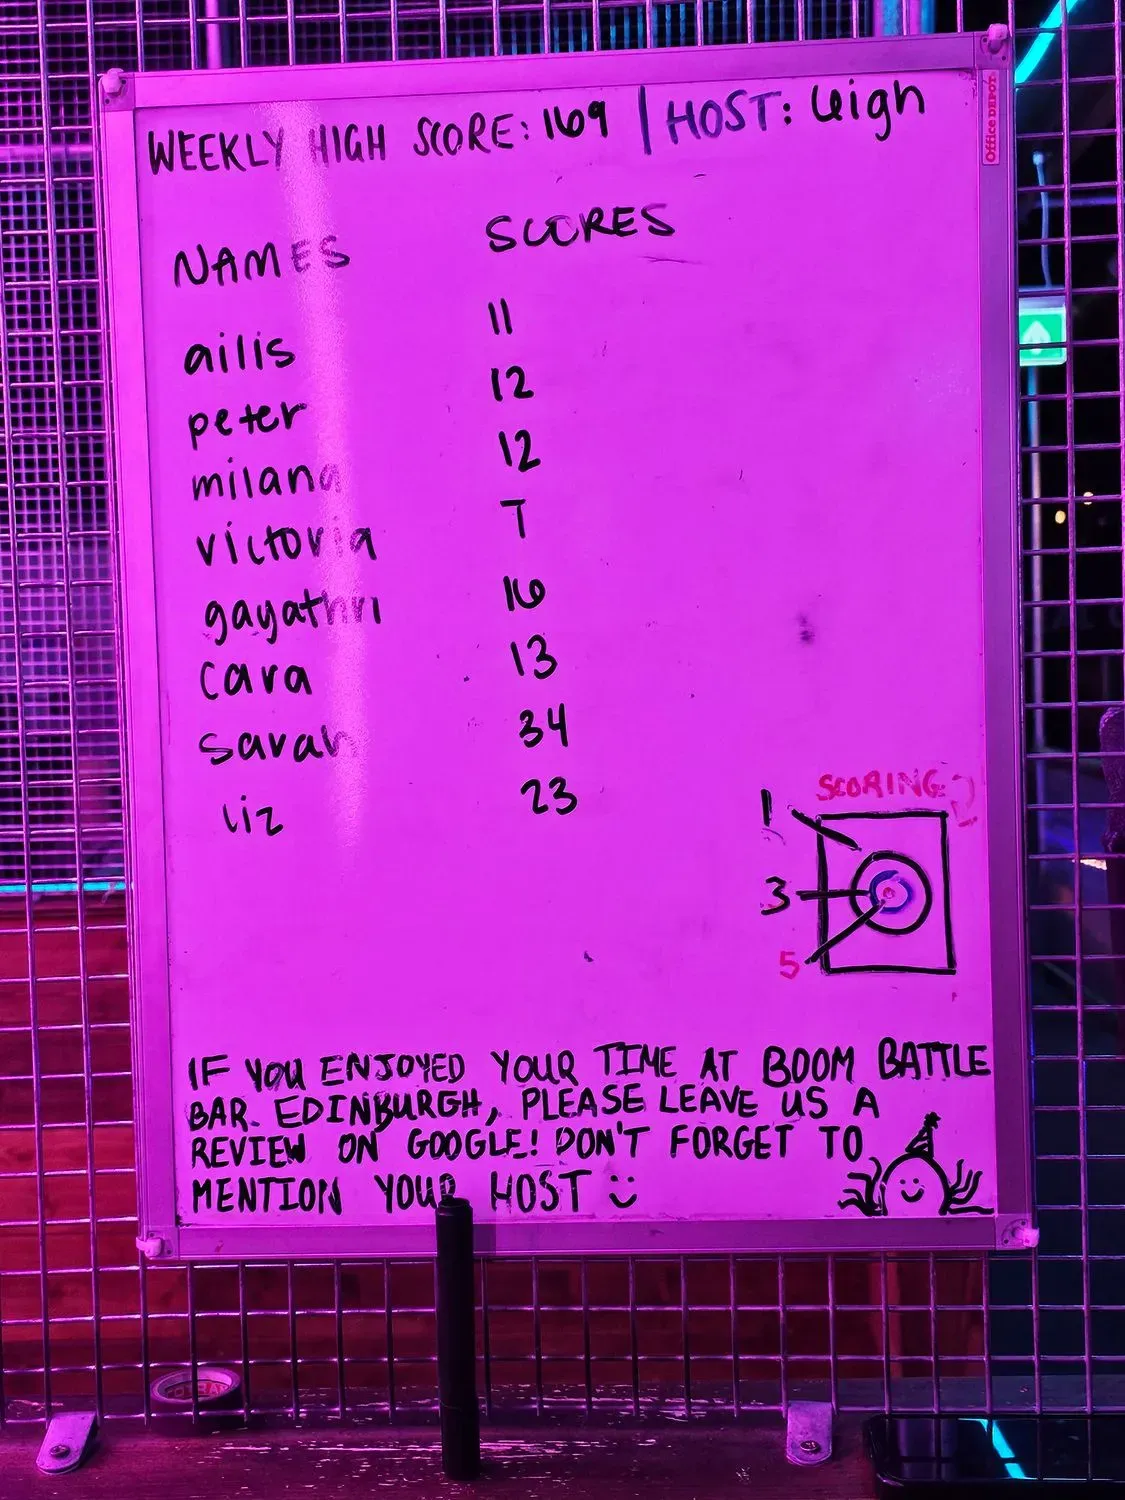 WEEKLY HIGH SCORE: 169 | HOST: Leigh
Office DEPOT
NAMES SCORES
ailis 11
peter 12
milana 12
victoria 7
gayathri 16
cara 13
sarah 34
liz 23
SCORING:
1
3
5
IF YOU ENJOYED YOUR TIME AT BOOM BATTLE
BAR EDINBURGH, PLEASE LEAVE US A
REVIEW ON GOOGLE! DON'T FORGET TO
MENTION YOUR HOST :)